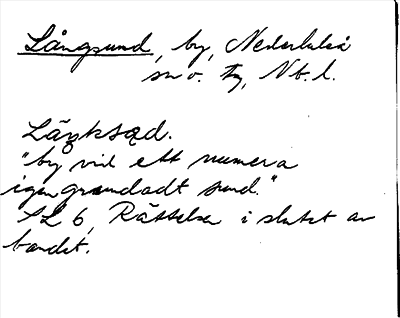 Långsund, by, Nederluleå
sn o. tg, Nb. l.
Läŋksąd.
"by vid ett numera
igengrundadt sund."
SL 6, Rättelse i slutet av
bandet.